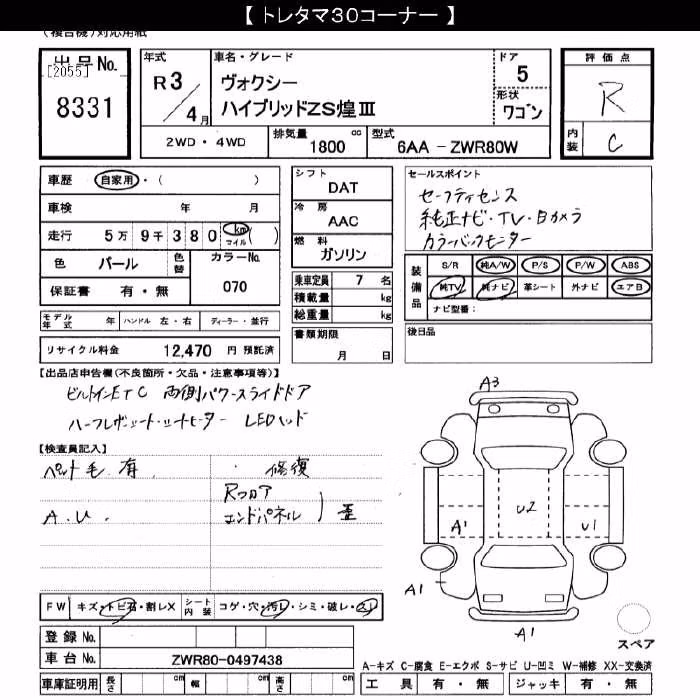 【 トレタマ30コーナー 】
(複合機)対応用紙
出品No.
[2055]
8331
年式
R3/4月
車名・グレード
ヴォクシー
ハイブリッドZS煌Ⅲ
ドア
5
形状
ワゴン
2WD・4WD
排気量
1800 cc
型式
6AA - ZWR80W
評価点
R
内装
C
車歴 自家用・( )
車検 年 月
走行 5万 9千 3 8 0 km マイル ( )
色 パール 色替 カラーNo.
保証書 有・無 070
シフト
DAT
冷房
AAC
燃料
ガソリン
乗車定員 7 名
積載量 kg
総重量 kg
セールスポイント
セーフティセンス
純正ナビ・TV・Bカメラ
カラーバックモニター
装備品
S/R 純A/W P/S P/W ABS
純TV 純ナビ 革シート 外ナビ エアB
ナビ型番:
モデル年式 年 ハンドル 左・右 ディーラー・並行
リサイクル料金 12,470 円 預託済
書類期限
月 日
後日品
【出品店申告欄(不良箇所・欠品・注意事項等)】
ビルトインETC 両側パワースライドドア
ハーフレザーシート・シートヒーター LEDヘッド
【検査員記入】
ペット毛 有 ・修復
Rフロア
A.U. エンドパネル ) 歪
A3
U2
A1
U1
A1
A1
スペア
FW キズ・トビ石・割レX シート内装 コゲ・穴・汚レ・シミ・破レ・スレ
登録No.
車台No. ZWR80-0497438
車庫証明用 長さ cm 幅 cm 高さ cm
A-キズ C-腐食 E-エクボ S-サビ U-凹ミ W-補修 XX-交換済
工具 有・無 ジャッキ 有・無